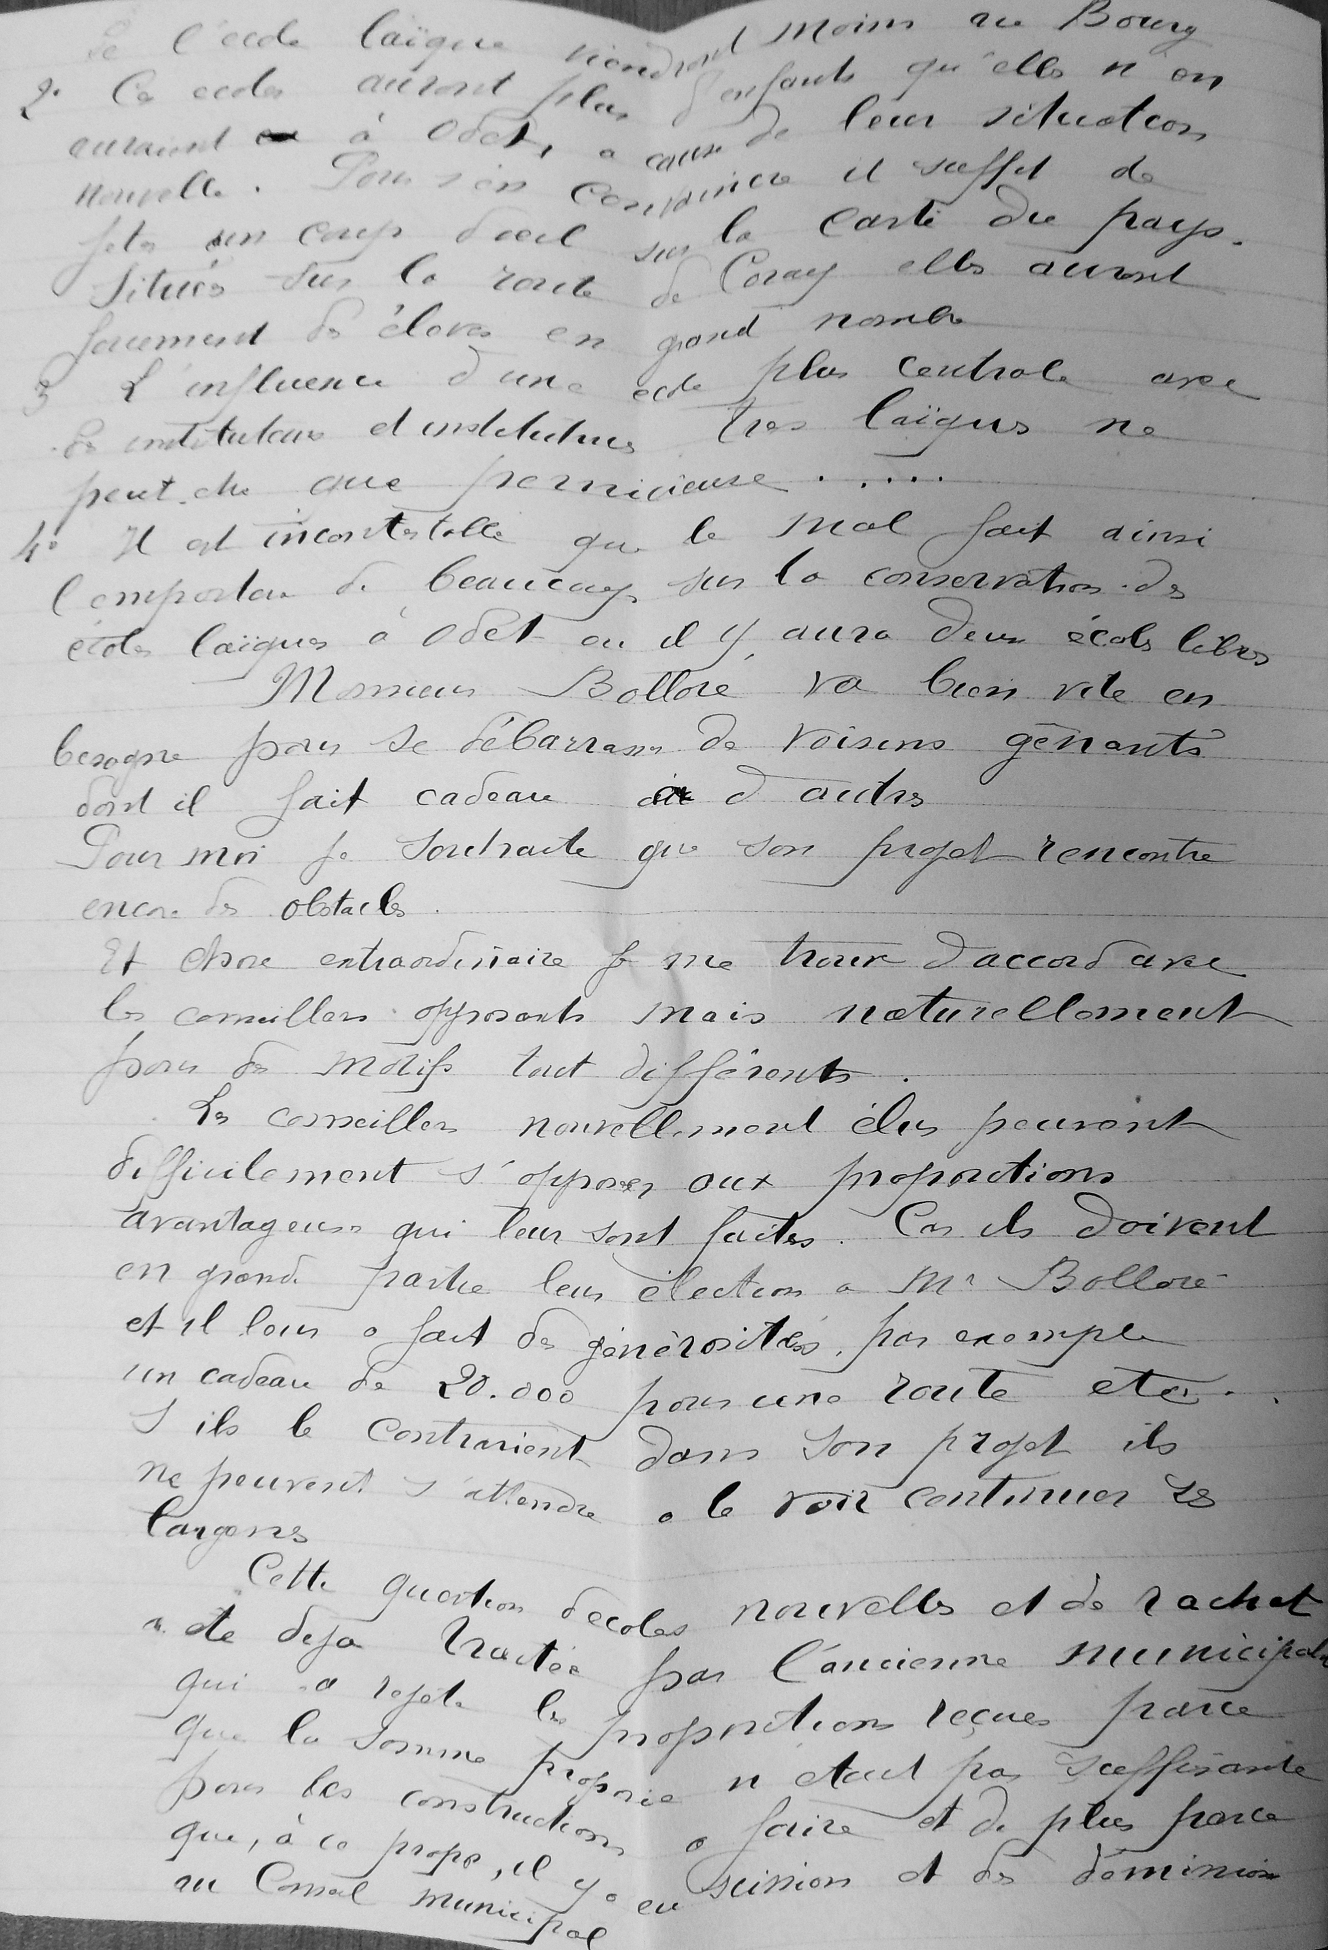 de l'école laïque viendront moins au Bourg
2° Ces écoles auront plus d'enfants qu'elles n'en
auraient à Odet, a cause de leur situation
nouvelle. Pour s'en convaincre il suffit de
jeter un coup d'oeil sur la carte du pays.
Situées sur la route de Coray elles auront
forcement des élèves en grand nombre
3 L'influence d'une ecole plus centrale avec
des instituteurs et institutrices très laïques ne
peut-être que pernicieuse . . . . .
4° Il est incontestable que le mal fait ainsi
l'emportera de beaucoup sur la conservation des
écoles laïques à Odet ou il y aura deux écoles libres
Monsieur Bolloré va bien vite en
besogne pour se débarrasser de voisins gênants
dont il fait cadeau à d'autres
Pour moi je souhaite que son projet rencontre
encore des obstacles.
Et chose extraordinaire je me trouve d'accord avec
les conseillers opposants mais naturellement
pour des motifs tout différents.
Les conseillers nouvellement élus peuvent
difficilement s'opposer aux propositions
avantageuses qui leur sont faites. Car ils doivent
en grande partie leur élection a Mr Bolloré
et il leur a fait des générosités, par exemple
un cadeau de 20.000 pour une route etc.
S'ils le contrarient dans son projet ils
ne peuvent s'attendre a le voir continuer ses
largesses
Cette question d'ecoles nouvelles et de rachat
a été déja traitée par l'ancienne municipalité
qui a rejeté les propositions reçues parce
que la somme proposée n'etait pas suffisante
pour les constructions a faire et de plus parce
que, à ce propos, il y a eu scission et des démissions
au Conseil municipal